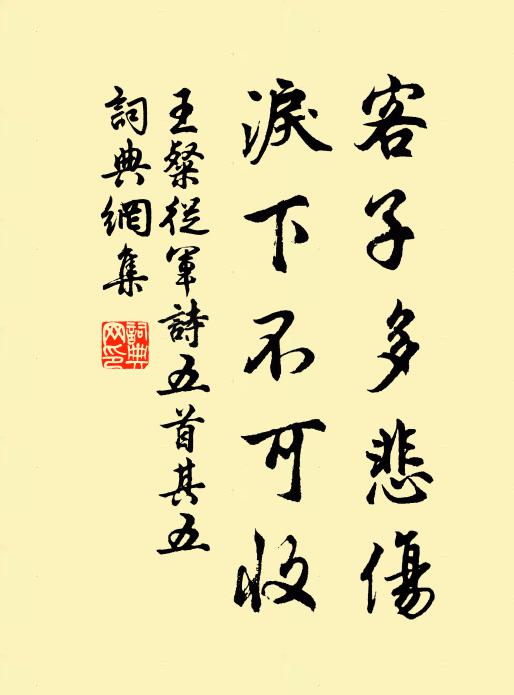 客子多悲傷
淚下不可收
王粲從軍詩五首其五
詞典網集
詞典網印